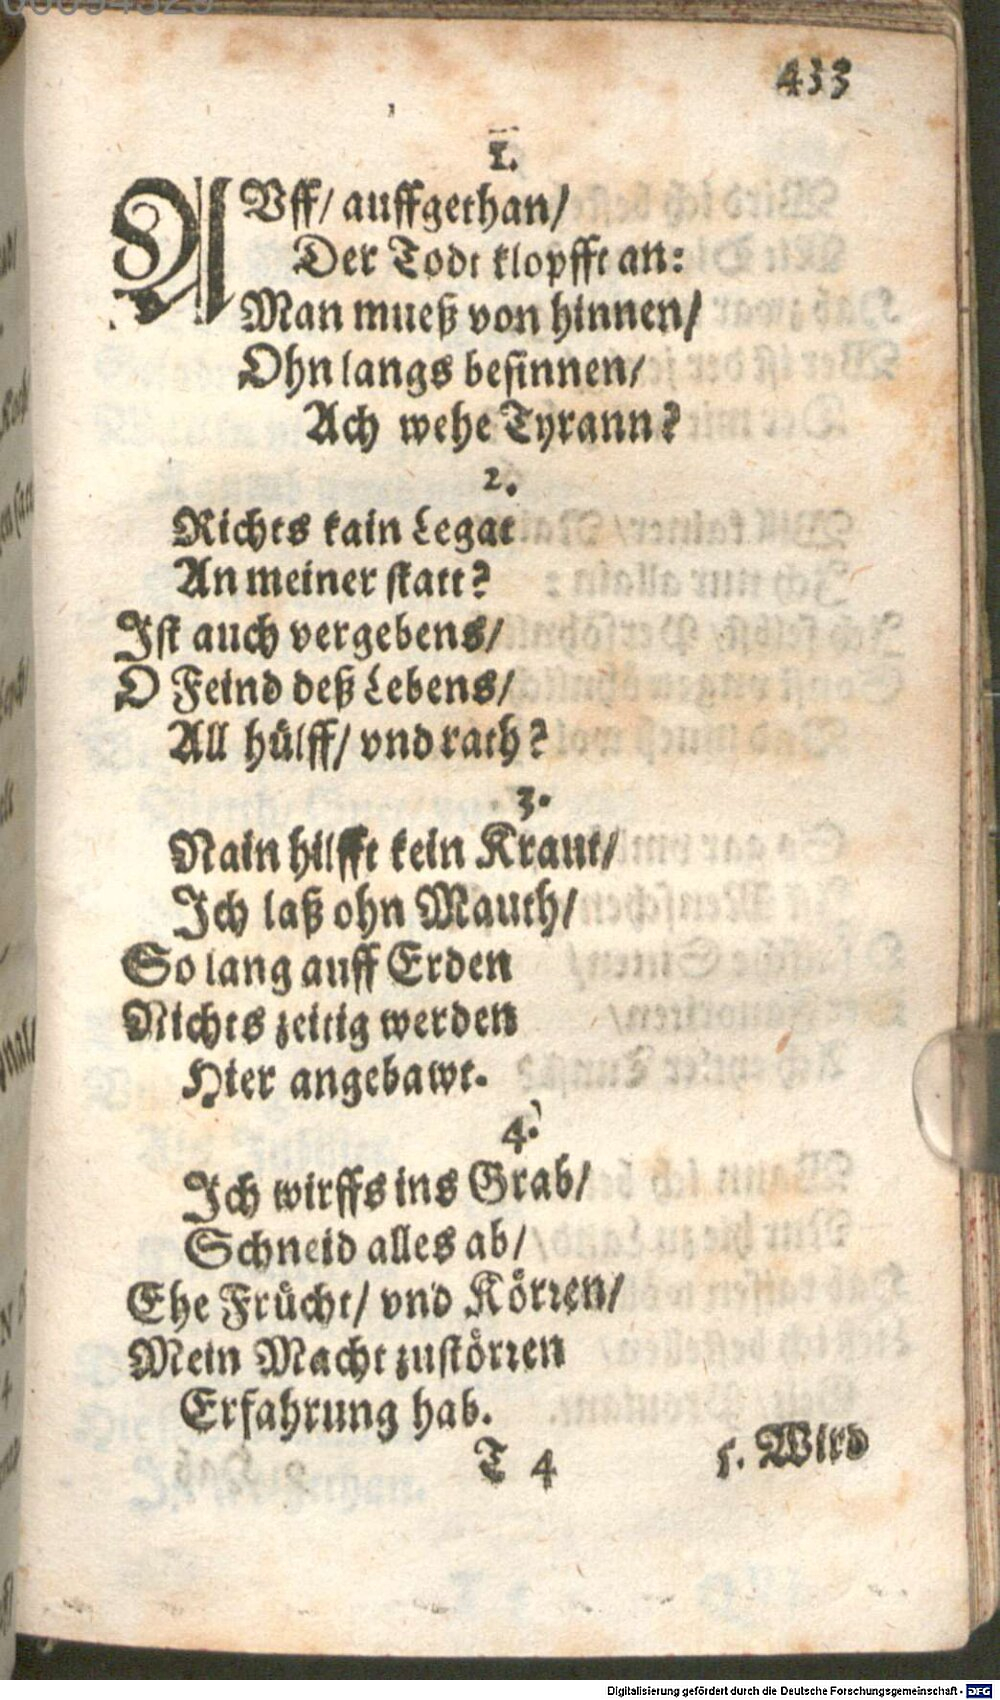 433
1.
AVff/ auffgethan/
Der Todt klopfft an:
Man mueß von hinnen/
Ohn langs besinnen/
Ach wehe Tyrann?
2.
Richts kain Legat
An meiner statt?
Ist auch vergebens/
O Feind deß Lebens/
All hülff/ vnd rath?
3.
Nain hilfft kein Kraut/
Ich laß ohn Mauth/
So lang auff Erden
Nichts zeitig werden
Hier angebawt.
4.
Ich wirffs ins Grab/
Schneid alles ab/
Ehe Frücht/ vnd Körren/
Mein Macht zustörren
Erfahrung hab.
T 4
5. Wird
Digitalisierung gefördert durch die Deutsche Forschungsgemeinschaft - DFG